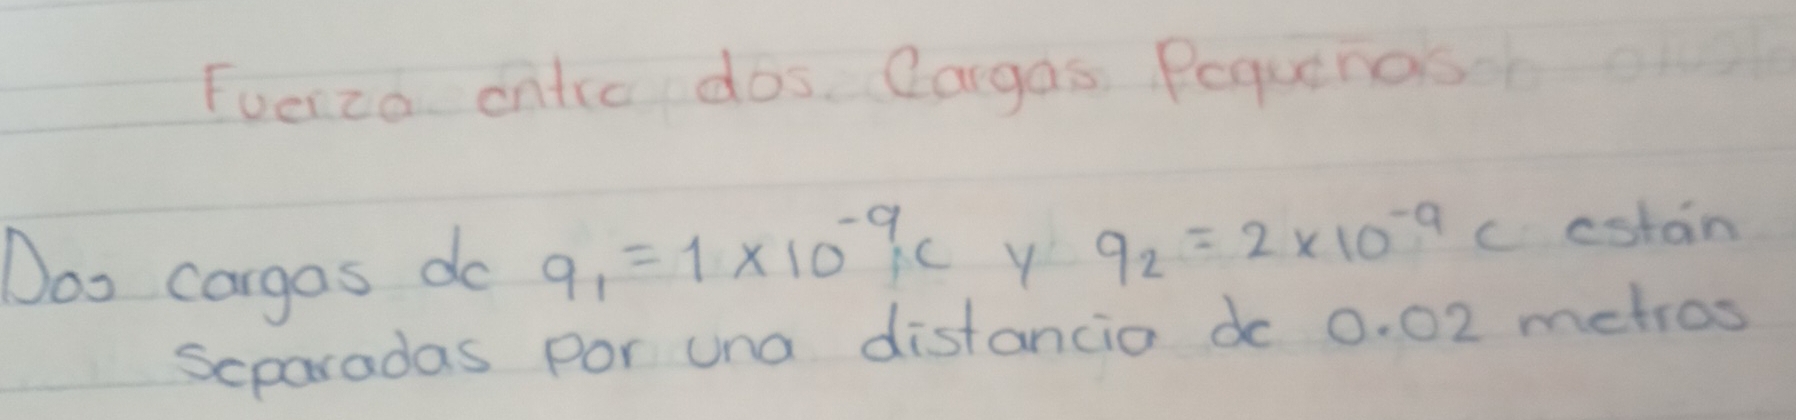 Fuerza entre dos Cargas Pequeñas
Dos cargas de q₁ = 1 × 10⁻⁹ c y q₂ = 2 × 10⁻⁹ c están
separadas por una distancia de 0.02 metros